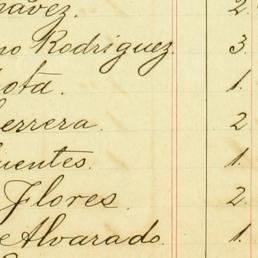 havez. 2.
no Rodriguez. 3.
ota. 1.
errera. 2
uentes. 1.
Flores. 2.
e Alvarado. 1.